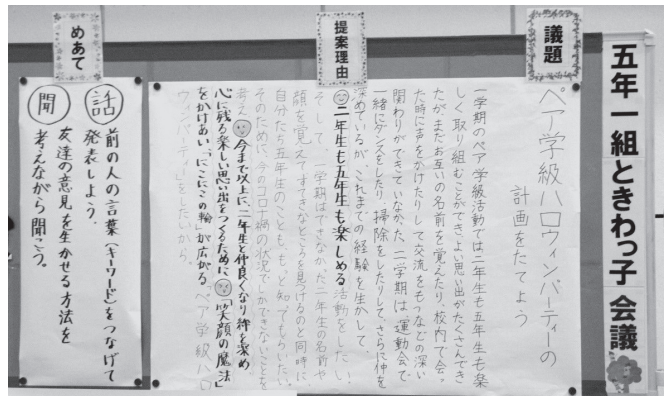 五年一組ときわっ子会議
議題
ペア学級ハロウィンパーティーの
計画をたてよう
提案理由
一学期のペア学級活動では二年生も五年生も楽
しく取り組むことができ、よい思い出がたくさんでき
たが、まだお互いの名前を覚えたり、校内で会っ
た時に声をかけたりして交流をもつなどの深い
関わりができていなかった。二学期は運動会で
一緒にダンスをしたり、掃除をしたりして、さらに仲を
深めているが、これまでの経験を生かして、
二年生も五年生も楽しめる活動をしたい。
そして、一学期はできなかった二年生の名前や
顔を覚えてすてきなところを見つけるのと同時に、
自分たち五年生のことも、もっと知ってもらいたい。
そのために、今のコロナ禍の状況でしかできないことを
考え、今まで以上に、二年生と仲良くなり絆を深め
心に残る楽しい思い出をつくるために「笑顔の魔法」
をかけあい、「にこにこの輪」が広がるペア学級ハロ
ウィンパーティーをしたいから。
めあて
話
前の人の言葉(キーワード)をつなげて
発表しよう。
聞
友達の意見を生かせる方法を
考えながら聞こう。